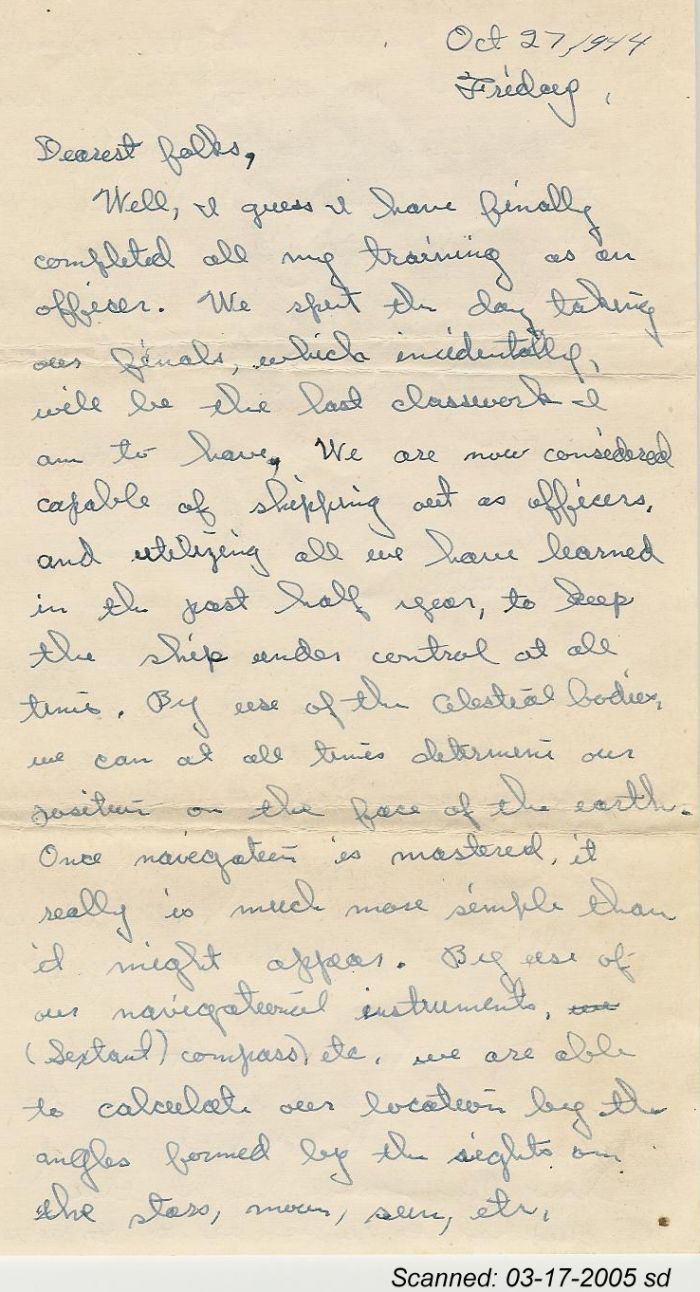 Oct 27, 1944
Friday,
Dearest folks,
Well, I guess I have finally
completed all my training as an
officer. We spent the day taking
our finals, which incidentally,
will be the last classwork I
am to have. We are now considered
capable of shipping out as officers,
and utilizing all we have learned
in the past half year, to keep
the ship under control at all
times. By use of the celestial bodies,
we can at all times determine our
position on the face of the earth.
Once navigation is mastered, it
really is much more simple than
it might appear. By use of
our navigational instruments,
(Sextant) compass) etc. we are able
to calculate our location by the
angles formed by the sights on
the stars, moon, sun, etc.
Scanned: 03-17-2005 sd